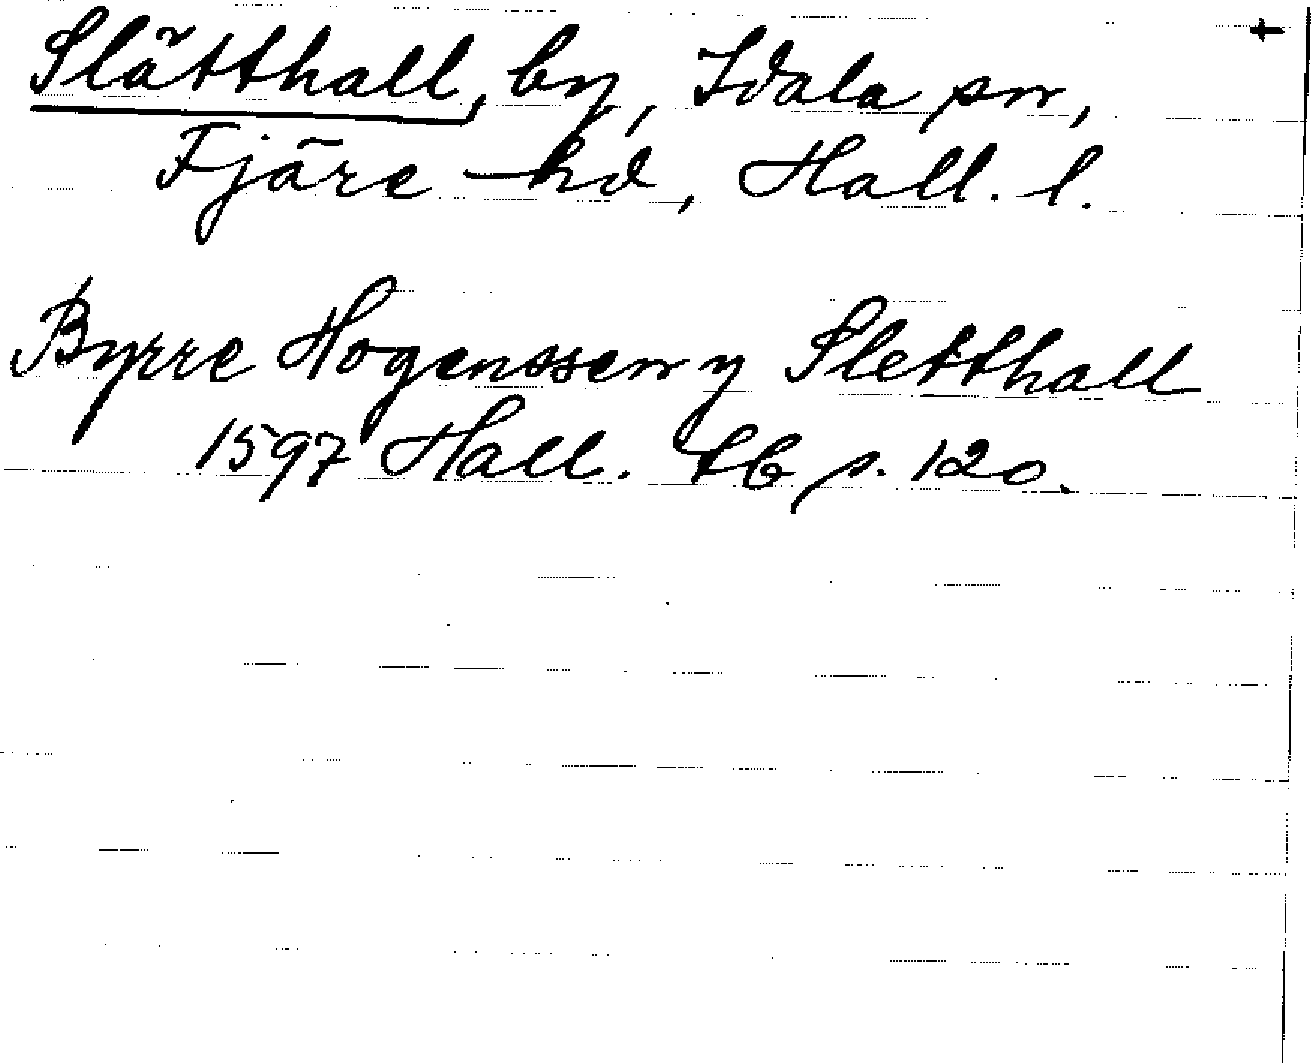 Slätthall, by, Idala sn,
Fjäre hd, Hall. l.
Byrre Hogenssen y Sletthall
1597 Hall. tb s. 120.